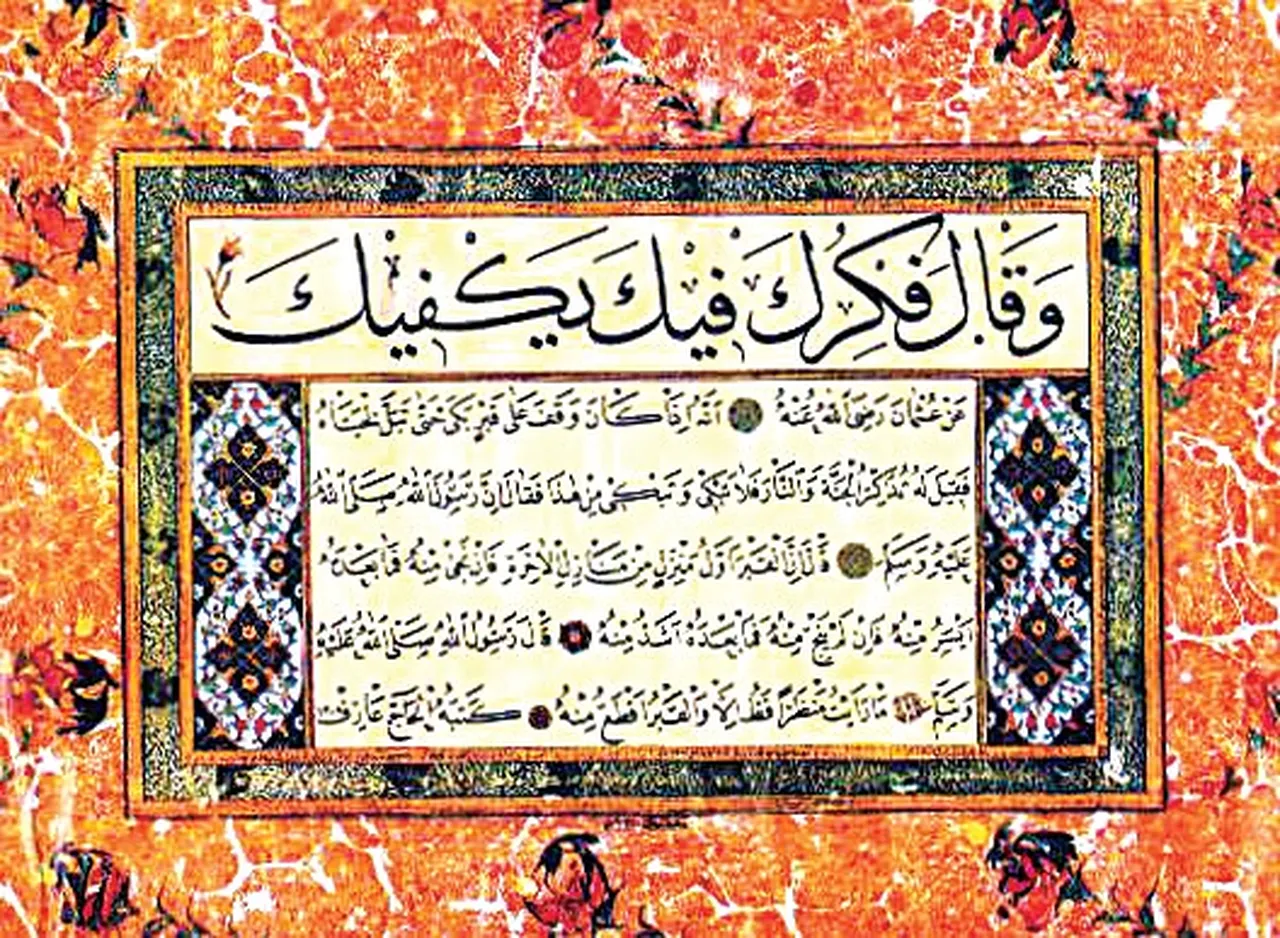 وَقَالَ فَكِرُكَ فِيْكَ يَكْفِيْكَ
عَنْ عُثْمَانَ رَضِيَ اللهُ عَنْهُ اَنَّهُ اِذَا كَانَ وَقَفَ عَلَى قَبْرٍ بَكَى حَتَّى تَبْتَلَّ لِحْيَتَهُ
فَقِيْلَ لَهُ تُذْكَرُ الْجَنَّةُ وَالنَّارُ فَلَا تَبْكِي وَتَبْكِي مِنْ هٰذَا فَقَالَ اِنَّ رَسُولَ اللهِ صَلَّى اللهُ
عَلَيْهِ وَسَلَّمَ قَالَ اِنَّ الْقَبْرَ اَوَّلُ مَنْزِلٍ مِنْ مَنَازِلِ الْاٰخِرَةِ فَاِنْ نَجٰى مِنْهُ فَمَا بَعْدَهُ
اَيْسَرُ مِنْهُ فَاِنْ لَمْ يَنْجُ مِنْهُ فَمَا بَعْدَهُ اَشَدُّ مِنْهُ قَالَ رَسُولُ اللهِ صَلَّى اللهُ عَلَيْهِ
وَسَلَّمَ مَا رَاَيْتُ مَنْظَرًا قَطُّ اِلَّا وَالْقَبْرُ اَفْظَعُ مِنْهُ كَتَبَهُ الْحَاجْ عَارِفْ